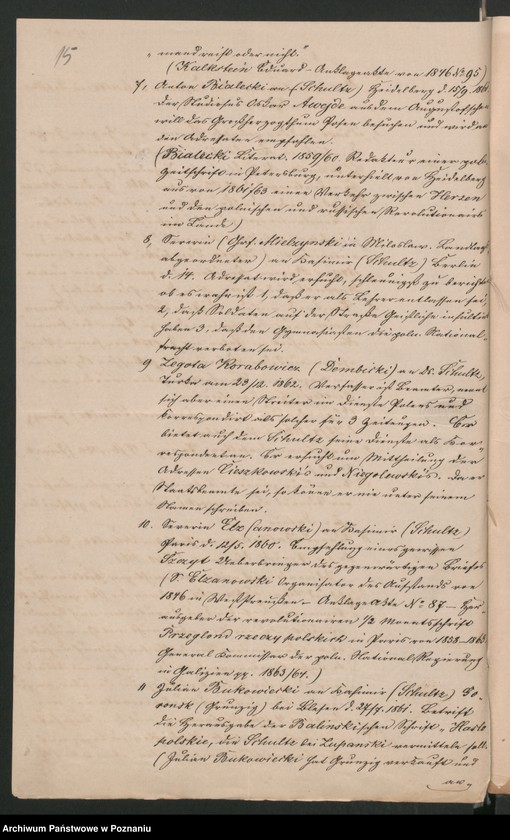 15
„mand reist oder nicht."
(Kalkstein Eduard - Anklageakte von 1846 No 95)
7, Anton Bialecki an (Schultz) Heidelberg d. 15/9. 1861
der Studiosus Oskar Aweyde aus dem Augustofsche
will das Großherzogthum Posen besuchen und wird
den Adressaten empfohlen.
(Bialecki Literat. 1859/60. Redakteur einer poln.
Zeitschrift in Petersburg, unterhielt von Heidelberg
aus von 1861/63 einen Verkehr zwischen Herzen
und den polnischen und russischen Revolutionairs
im Lande)
8, Severin (Graf Mielzynski in Miloslaw. Landtags
abgeordneter) an Kasimir (Schultz) Berlin
d. 14. Adressat wird ersucht, schleunigst zu berichten
ob es wahr ist 1, daß er als Lehrer entlassen sei,
2, daß Soldaten auf der Straße Geistliche insultirt
haben 3, daß den Gymnasiasten die poln. National-
tracht verboten sei.
9 Zegota Korabowicz (Dombicki) an Dr. Schultz,
Turka am 23/12. 1862. Verfasser ist Beamter, nennt
sich aber einen Streiter im Dienste Polens und
korrespondirt als solcher für 3 Zeitungen. Er
bietet auch dem Schultz seine Dienste als Kor-
respondenten. Er ersucht um Mittheilung der
Adressen Cieszkowski's und Niegolewski's. Da er
Staatsbeamte sei, so könne er nie unter seinem
Namen schreiben.
10. Severin Elz(anowski) an Kasimir (Schultz)
Paris d. 12/5. 1860. Empfehlung eines gewissen
Ueberbringer des gegenwärtigen Briefes
(S. Elzanowski Organisator des Aufstands von
1846 in Westpreußen - Anklage Akte No 87 - Her-
ausgeber der revolutionairen 1/2 Monatsschrift
Przeglond rzeczy polskich in Paris von 1858-1863
General Kommissar der poln. National Regierung
in Galizien pp. 1863/64.)
11 Julian Bukowiecki an Kasimir (Schultz)
(Grunzig) bei Blesen d. 27/9. 1861. Betrifft
die Herausgabe der Balinskischen Schrift „Hasła
polskie, die Schultz bei Zupanski vermitteln soll.
(Julian Bukowiecki hat Grunzig verkauft und
Archiwum Państwowe w Poznaniu